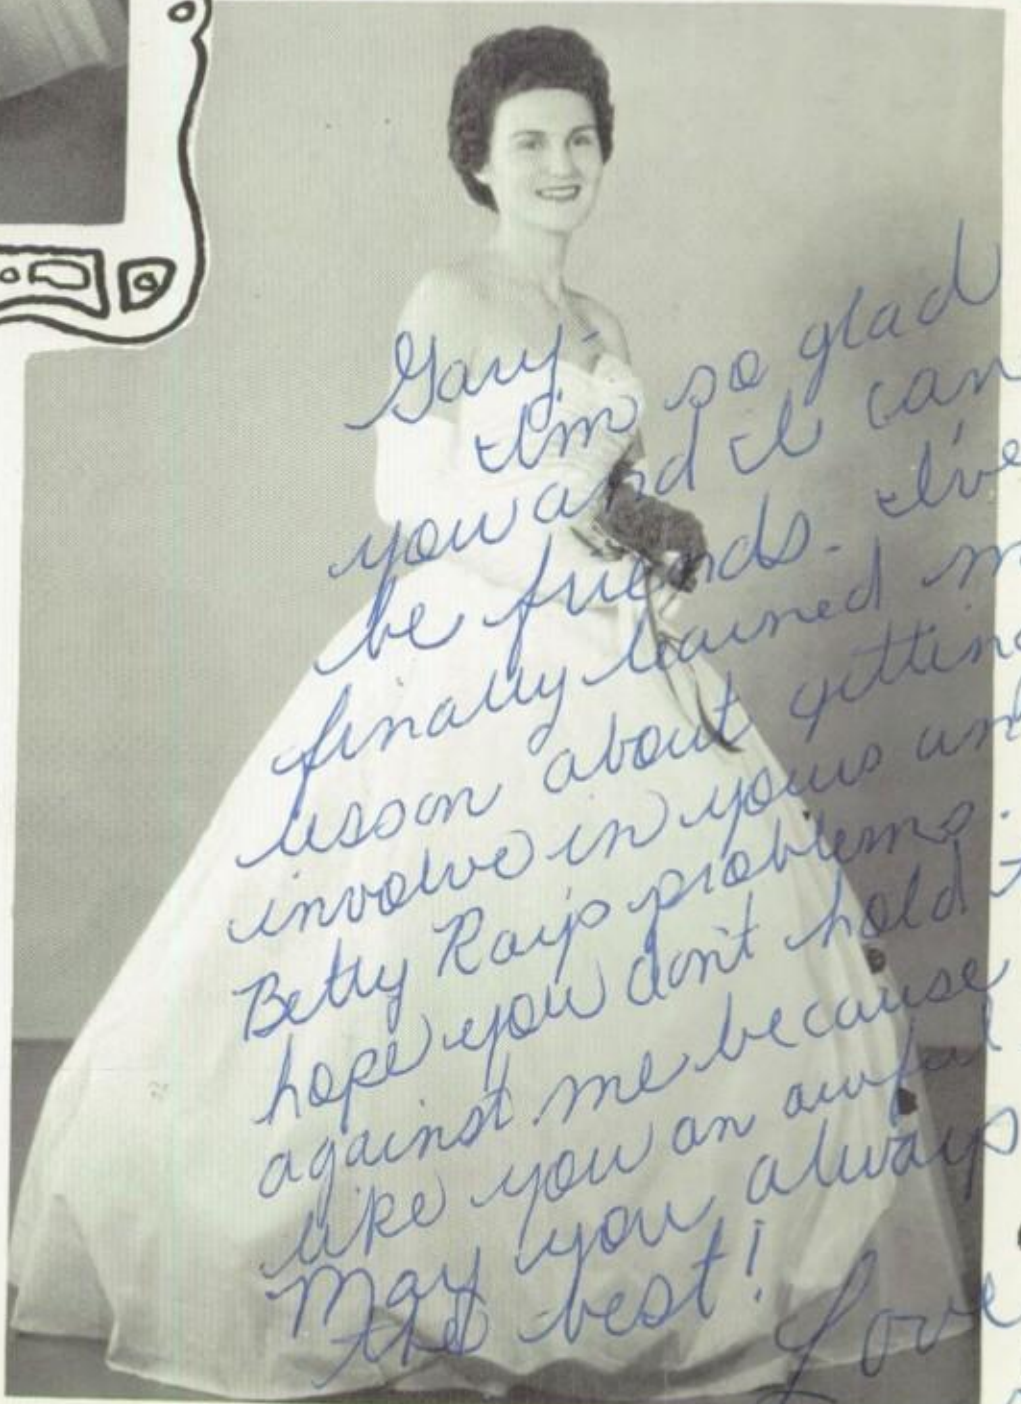 Gary-
I'm so glad
you and I can
be friends. I've
finally learned m
lesson about getting
involve in yours and
Betty Ray's problems.
hope you don't hold
against me because
like you an awful
May you always
the best!
Love